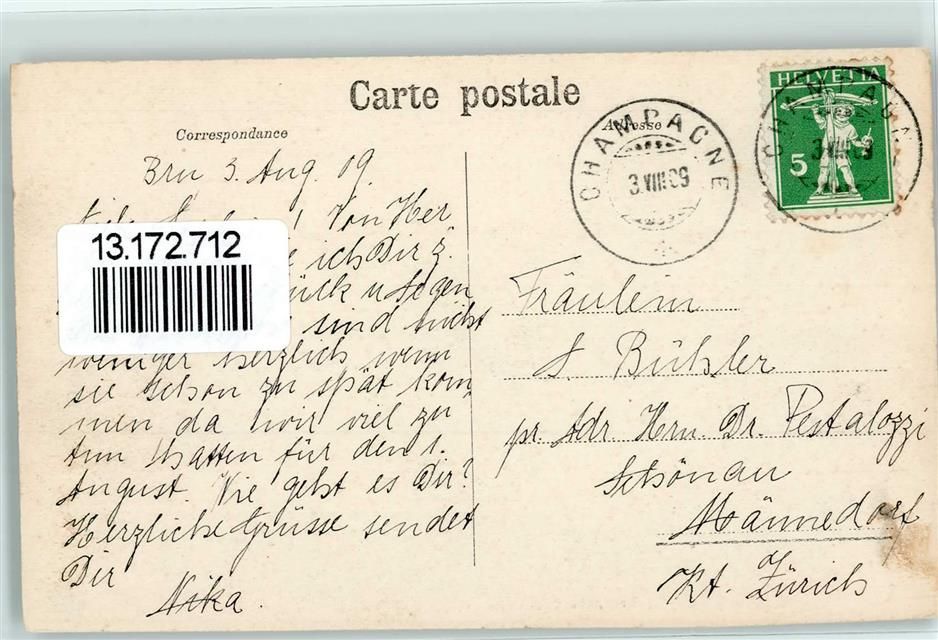 Carte postale
Correspondance
Adresse
CHAMPAGNE
3.VIII.09
HELVETIA
5
CHAMPAGNE
3.VIII.09
3. Aug. 09.
Von Her
ich Dir z.
ück u Segen
13.172.712
sind nicht
weniger herzlich wenn
sie schon zu spät kom
men da wir viel zu
tun hatten für den 1.
August. Wie geht es Dir?
Herzliche Grüsse sendet
Dir
Nika.
Fräulein
S. Bühler
pr. Adr Hrn Dr. Pestalozzi
Schönau
Männedorf
Kt. Zürich